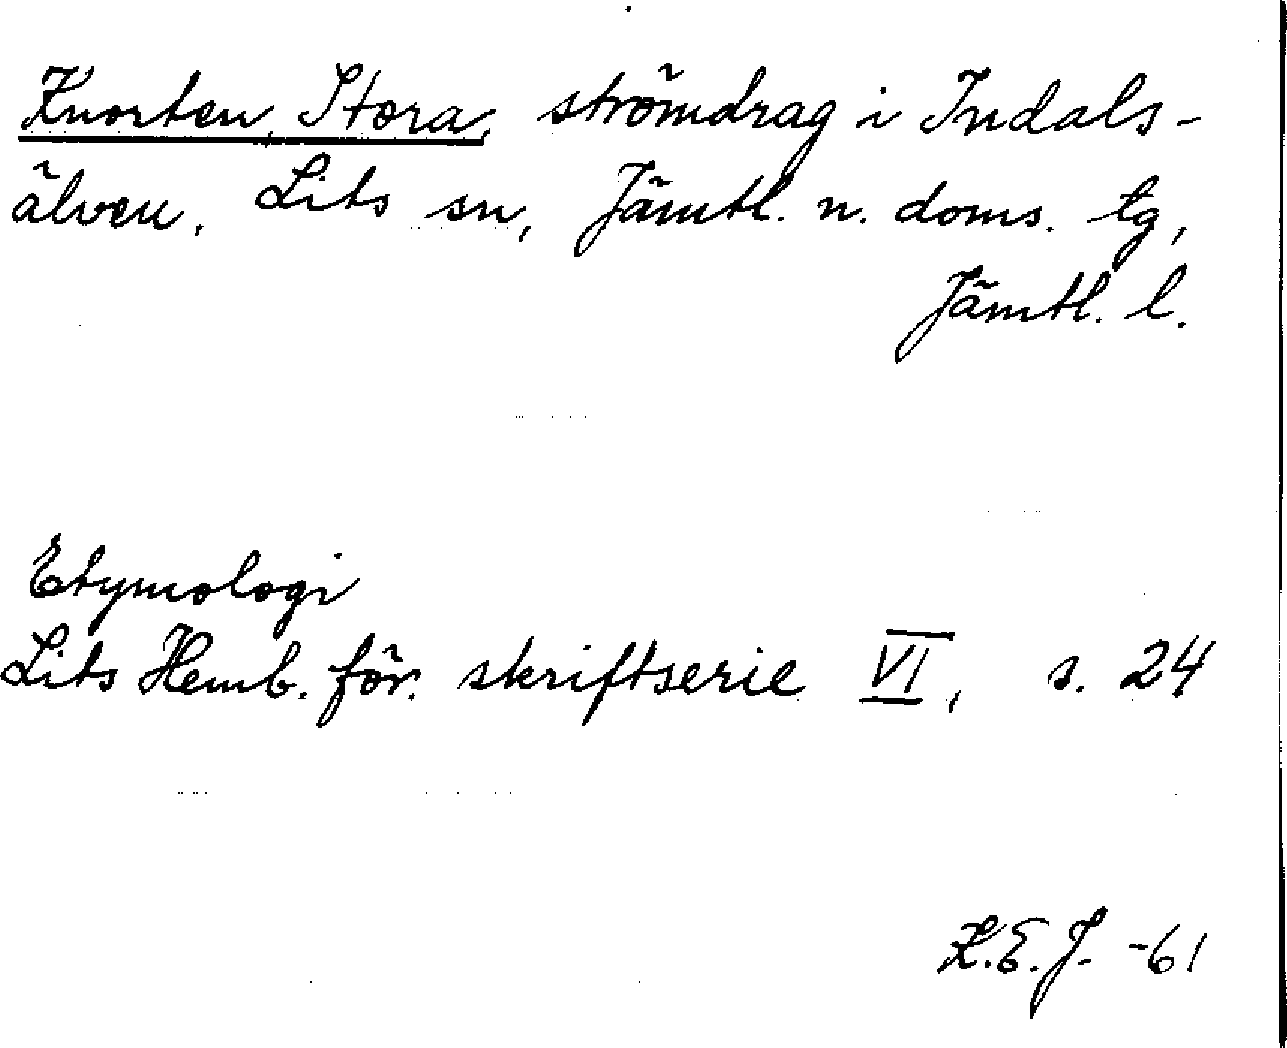 Knorten, Stora, strömdrag i Indals-
älven. Lits sn, Jämtl. n. doms. tg,
Jämtl. l.
Etymologi
Lits Hemb. för. skriftserie VI, s. 24
K.E.J. -61